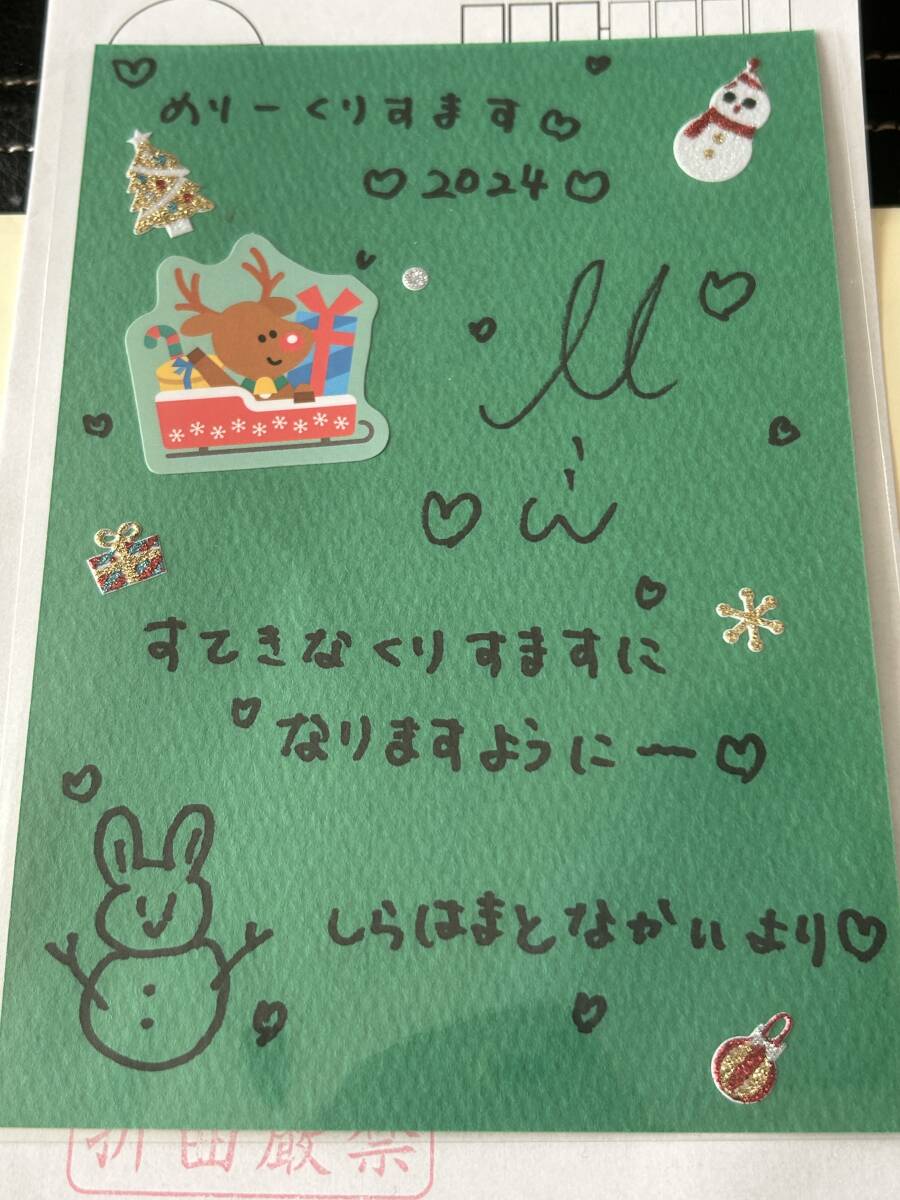 めりーくりすます♡
♡2024♡
すてきなくりすますに
なりますようにー♡
しらはまとなかいより♡
折曲厳禁